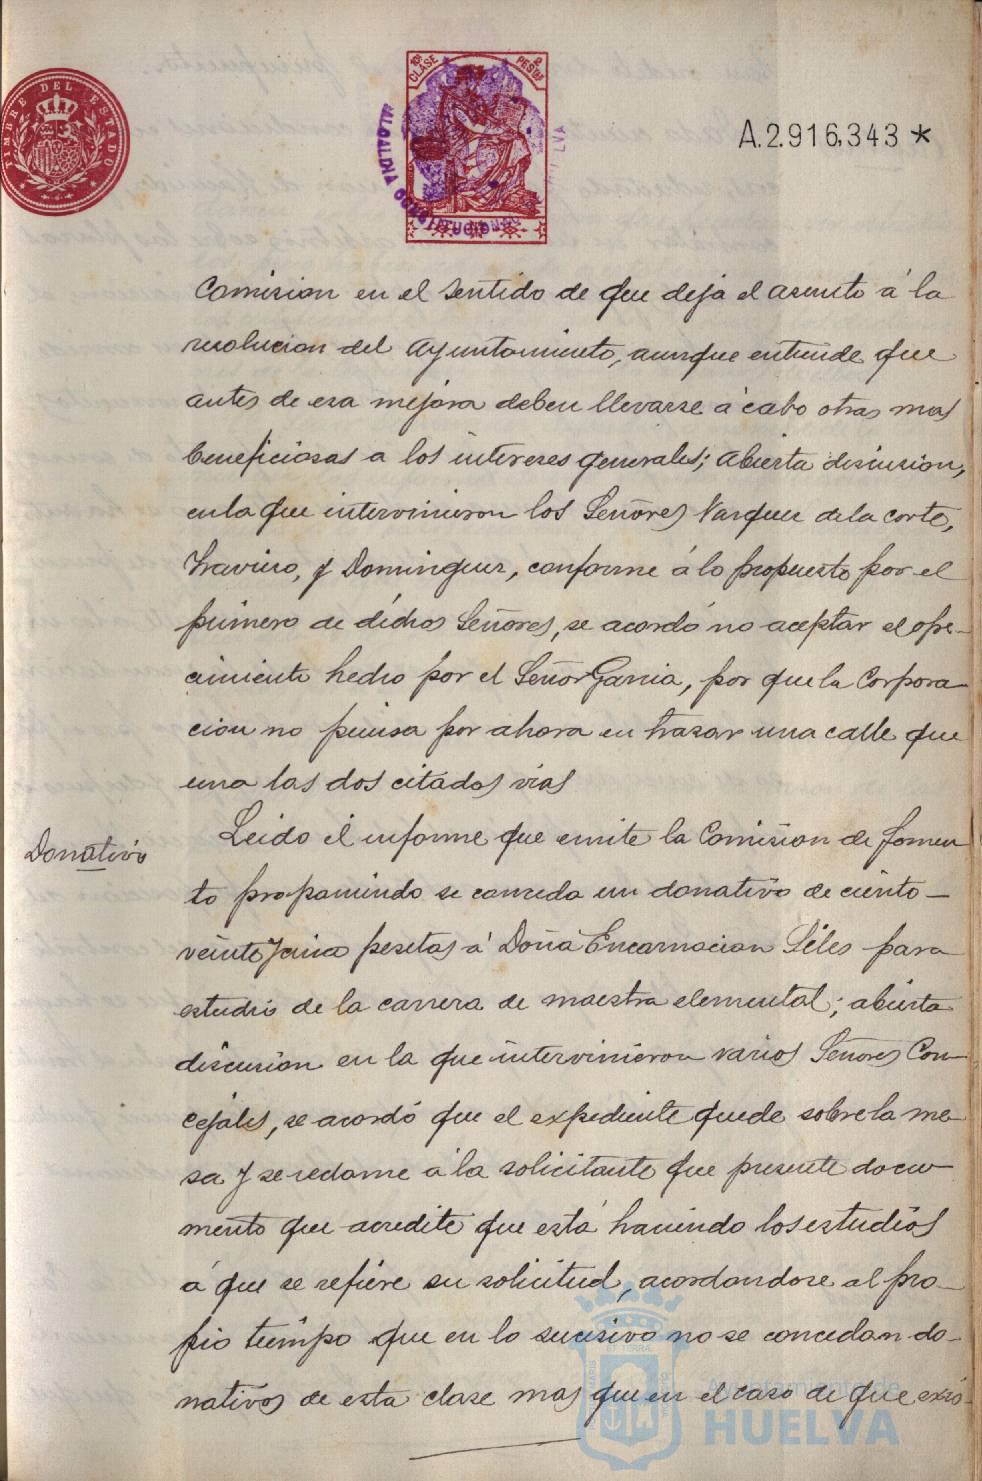 TIMBRE DEL ESTADO
10ª CLASE 2 PESTAS
ALCALDIA CONSTITUCIONAL
A.2.916,343 *
Comision en el sentido de que deja el asunto á la
resolucion del Ayuntamiento, aunque entiende que
antes de esa mejora deben llevarse á cabo otras mas
beneficiosas a los intereses generales; abierta discusion,
en la que intervinieron los Señores Vazquez de la Corte,
y Dominguez, conforme á lo propuesto por el
primero de dichos Señores, se acordó no aceptar el ofre-
cimiento hecho por el Señor Garcia, por que la Corpora-
cion no piensa por ahora en trazar una calle que
una las dos citadas vias
Donativo
Leido el informe que emite la Comision de Fomen-
to proponiendo se conceda un donativo de ciento
veinte y cinco pesetas á Doña Encarnacion Séles para
estudio de la carrera de maestra elemental; abierta
discusion en la que intervinieron varios Señores Con-
cejales, se acordó que el expediente quede sobre la me-
sa y se reclame á la solicitante que presente docu-
mento que acredite que está haciendo los estudios
á que se refiere su solicitud, acordandose al pro-
pio tiempo que en lo sucesivo no se concedan do-
nativos de esta clase mas que en el caso de que exis-
Ayuntamiento de
HUELVA